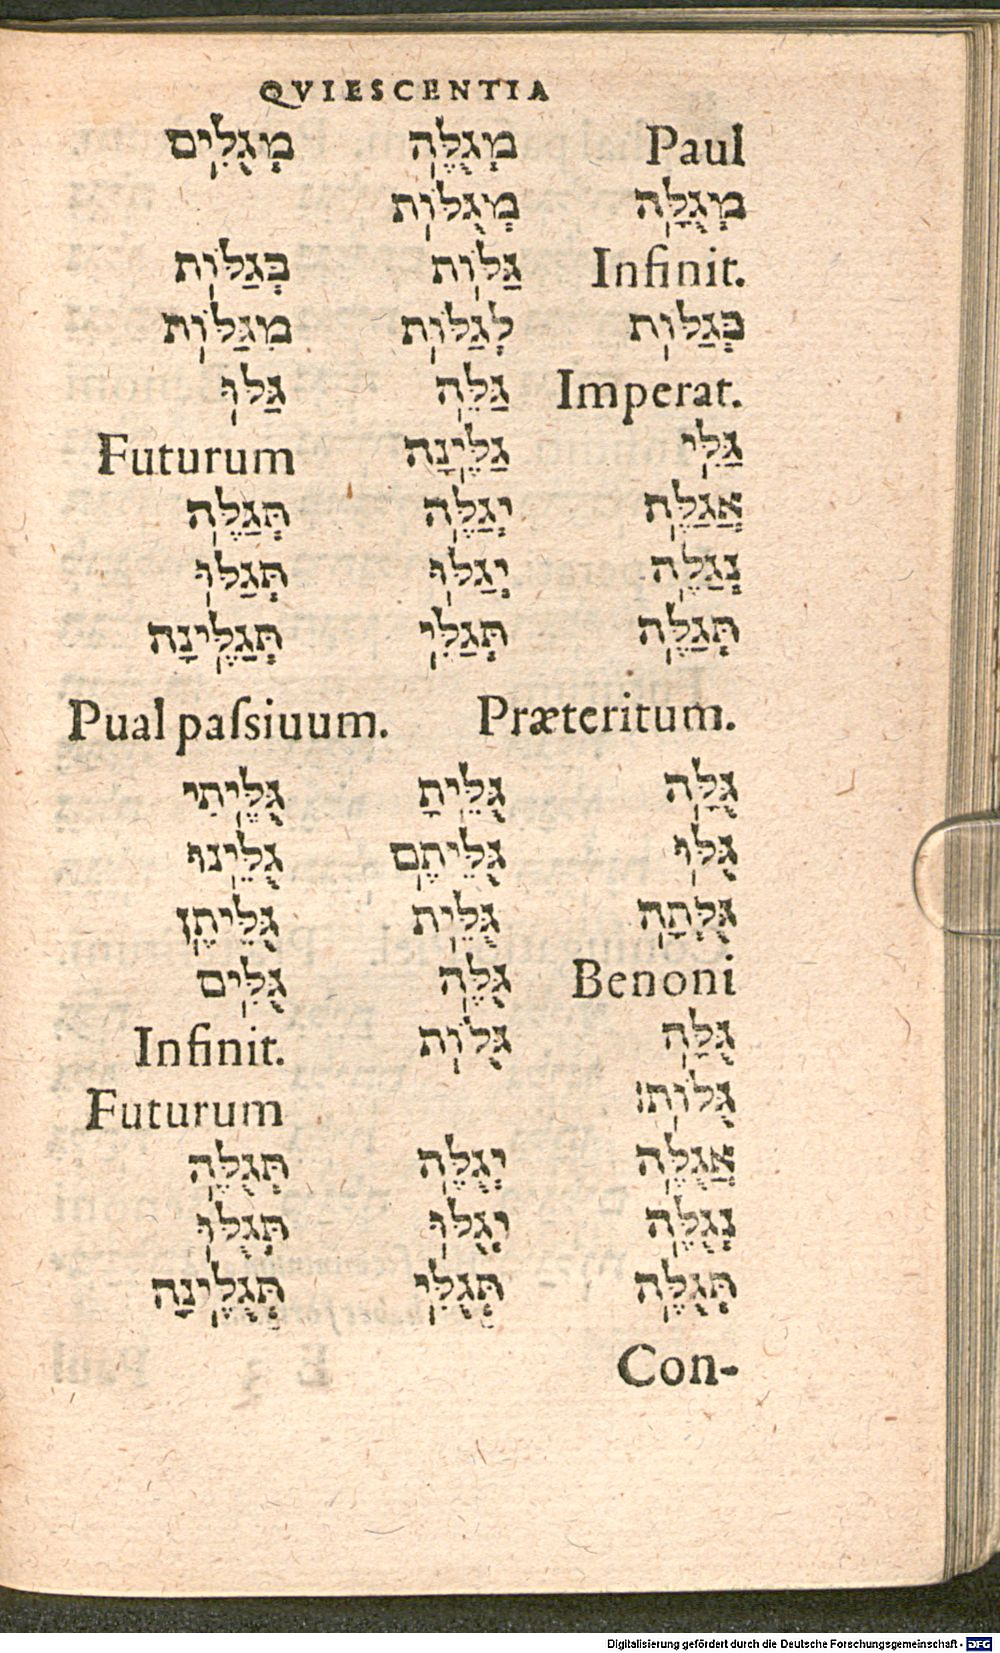 QVIESCENTIA
Paul מְגֻלֶּה מְגֻלִּים
מְגֻלָּה מְגֻלּוֹת
Infinit. גַּלּוֹת בְּגַלּוֹת
כְּגַלּוֹת לְגַלּוֹת מִגַּלּוֹת
Imperat. גַּלֵּה גַּלּוּ
גַּלִּי גַּלֶּינָה Futurum
אֲגַלֶּה יְגַלֶּה תְּגַלֶּה
נְגַלֶּה יְגַלּוּ תְּגַלּוּ
תְּגַלֶּה תְּגַלִּי תְּגַלֶּינָה
Pual paſsiuum. Præteritum.
גֻּלָּה גֻּלֵּיתָ גֻּלֵּיתִי
גֻּלּוּ גֻּלֵּיתֶם גֻּלֵּינוּ
גֻּלְּתָה גֻּלֵּית גֻּלֵּיתֶן
Benoni גֻּלֶּה גֻּלִּים
גֻּלָּה גֻּלּוֹת Infinit.
גֻּלּוֹת׃ Futurum
אֲגֻלֶּה יְגֻלֶּה תְּגֻלֶּה
נְגֻלֶּה יְגֻלּוּ תְּגֻלּוּ
תְּגֻלֶּה תְּגֻלִּי תְּגֻלֶּינָה
Con-
Digitalisierung gefördert durch die Deutsche Forschungsgemeinschaft - DFG